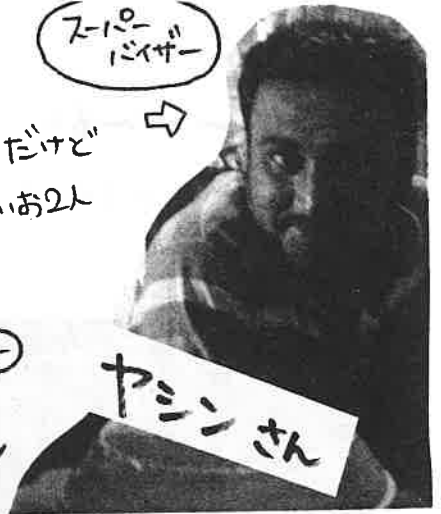 スーパー
バイザー
だけど
いお2人
ヤシンさん